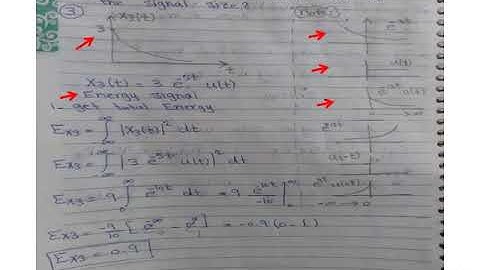 the signal size?
3
x₃(t)
3
t
x₃(t) = 3 e^-5t u(t)
Energy signal
1- get total Energy
Ex₃ = ∫ |x₃(t)|² dt
Ex₃ = ∫ |3 e^-5t u(t)|² dt
Ex₃ = 9 ∫ e^-10t dt = 9 e^-10t / -10 |
Ex₃ = -9/10 [e^-∞ - e^0] = -0.9 (0 - 1)
Ex₃ = 0.9
u(t)
u(-t)